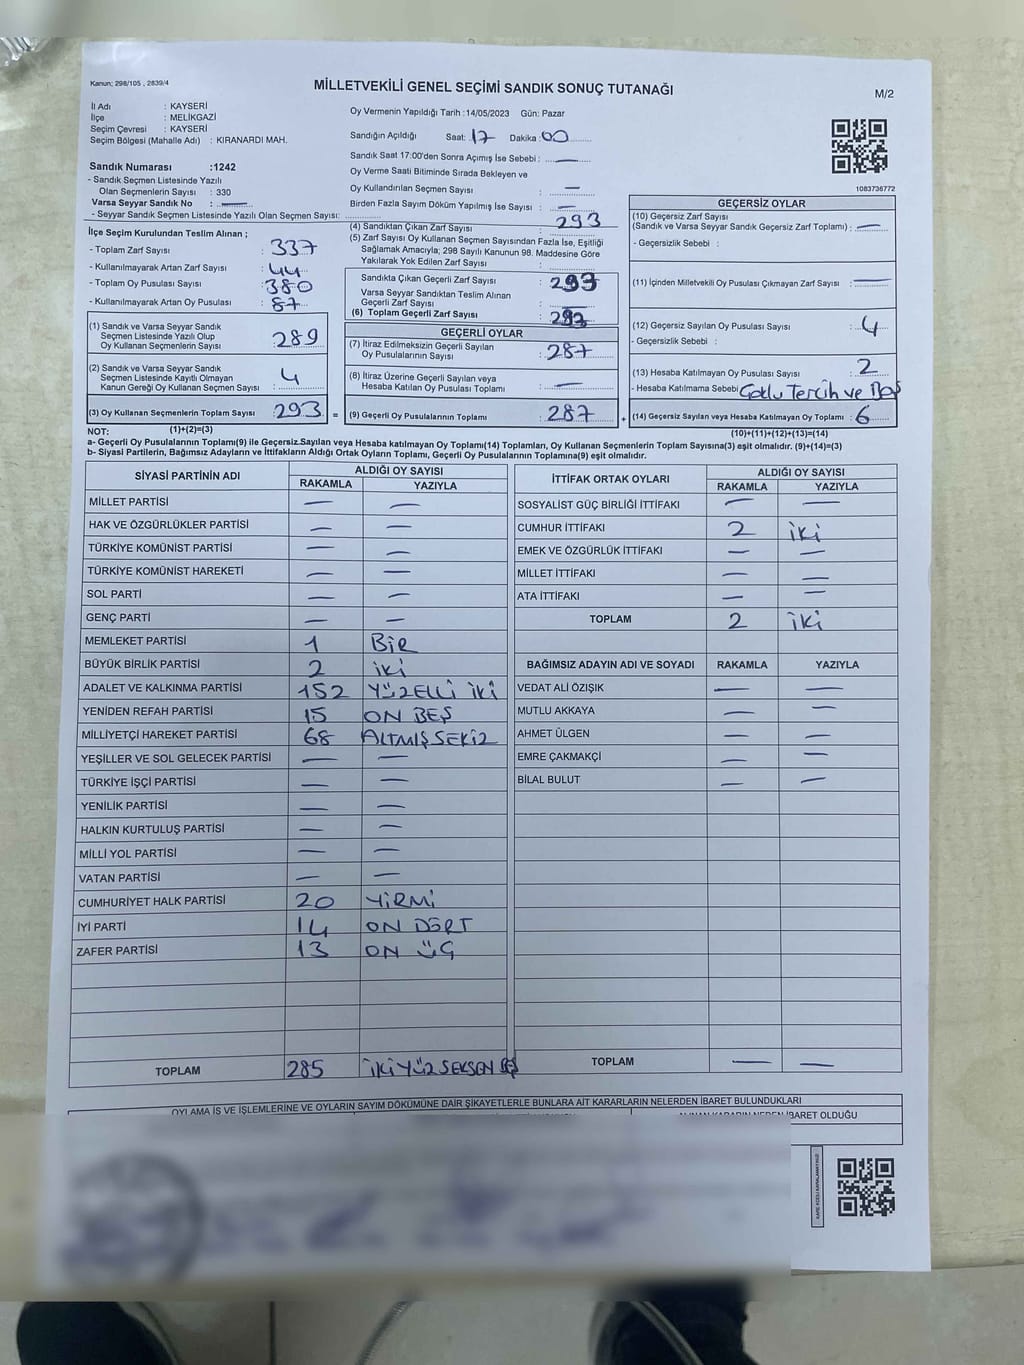 Kanun; 298/105 , 2839/4
MİLLETVEKİLİ GENEL SEÇİMİ SANDIK SONUÇ TUTANAĞI
M/2
İl Adı : KAYSERİ
İlçe : MELİKGAZİ
Seçim Çevresi : KAYSERİ
Seçim Bölgesi (Mahalle Adı) : KIRANARDI MAH.
Oy Vermenin Yapıldığı Tarih :14/05/2023 Gün: Pazar
Sandığın Açıldığı Saat: 17 Dakika : 00
Sandık Saat 17:00'den Sonra Açımış İse Sebebi : —
Oy Verme Saati Bitiminde Sırada Bekleyen ve
Oy Kullandırılan Seçmen Sayısı : —
Birden Fazla Sayım Döküm Yapılmış İse Sayısı : —
1083736772
Sandık Numarası :1242
- Sandık Seçmen Listesinde Yazılı
Olan Seçmenlerin Sayısı : 330
Varsa Seyyar Sandık No : —
- Seyyar Sandık Seçmen Listesinde Yazılı Olan Seçmen Sayısı:
İlçe Seçim Kurulundan Teslim Alınan ;
- Toplam Zarf Sayısı : 337
- Kullanılmayarak Artan Zarf Sayısı : 44
- Toplam Oy Pusulası Sayısı : 380
- Kullanılmayarak Artan Oy Pusulası : 87
(1) Sandık ve Varsa Seyyar Sandık
Seçmen Listesinde Yazılı Olup
Oy Kullanan Seçmenlerin Sayısı : 289
(2) Sandık ve Varsa Seyyar Sandık
Seçmen Listesinde Kayıtlı Olmayan
Kanun Gereği Oy Kullanan Seçmen Sayısı : 4
(3) Oy Kullanan Seçmenlerin Toplam Sayısı : 293 =
(4) Sandıktan Çıkan Zarf Sayısı : 293
(5) Zarf Sayısı Oy Kullanan Seçmen Sayısından Fazla İse, Eşitliği
Sağlamak Amacıyla; 298 Sayılı Kanunun 98. Maddesine Göre
Yakılarak Yok Edilen Zarf Sayısı :
Sandıkta Çıkan Geçerli Zarf Sayısı : 293
Varsa Seyyar Sandıktan Teslim Alınan
Geçerli Zarf Sayısı : —
(6) Toplam Geçerli Zarf Sayısı : 293
GEÇERLİ OYLAR
(7) İtiraz Edilmeksizin Geçerli Sayılan
Oy Pusulalarının Sayısı : 287
(8) İtiraz Üzerine Geçerli Sayılan veya
Hesaba Katılan Oy Pusulası Toplamı : —
(9) Geçerli Oy Pusulalarının Toplamı : 287 +
GEÇERSİZ OYLAR
(10) Geçersiz Zarf Sayısı
(Sandık ve Varsa Seyyar Sandık Geçersiz Zarf Toplamı) : —
- Geçersizlik Sebebi :
(11) İçinden Milletvekili Oy Pusulası Çıkmayan Zarf Sayısı : —
(12) Geçersiz Sayılan Oy Pusulası Sayısı : 4
- Geçersizlik Sebebi :
(13) Hesaba Katılmayan Oy Pusulası Sayısı : 2
- Hesaba Katılmama Sebebi : Çoklu Tercih ve Boş
(14) Geçersiz Sayılan veya Hesaba Katılmayan Oy Toplamı : 6
NOT: (1)+(2)=(3)
(10)+(11)+(12)+(13)=(14)
a- Geçerli Oy Pusulalarının Toplamı(9) ile Geçersiz Sayılan veya Hesaba katılmayan Oy Toplamı(14) Toplamları, Oy Kullanan Seçmenlerin Toplam Sayısına(3) eşit olmalıdır. (9)+(14)=(3)
b- Siyasi Partilerin, Bağımsız Adayların ve İttifakların Aldığı Ortak Oyların Toplamı, Geçerli Oy Pusulalarının Toplamına(9) eşit olmalıdır.
SİYASİ PARTİNİN ADI ALDIĞI OY SAYISI
RAKAMLA YAZIYLA
MİLLET PARTİSİ — —
HAK VE ÖZGÜRLÜKLER PARTİSİ — —
TÜRKİYE KOMÜNİST PARTİSİ — —
TÜRKİYE KOMÜNİST HAREKETİ — —
SOL PARTİ — —
GENÇ PARTİ — —
MEMLEKET PARTİSİ 1 BİR
BÜYÜK BİRLİK PARTİSİ 2 İKİ
ADALET VE KALKINMA PARTİSİ 152 YÜZELLİ İKİ
YENİDEN REFAH PARTİSİ 15 ON BEŞ
MİLLİYETÇİ HAREKET PARTİSİ 68 ALTMIŞ SEKİZ
YEŞİLLER VE SOL GELECEK PARTİSİ — —
TÜRKİYE İŞÇİ PARTİSİ — —
YENİLİK PARTİSİ — —
HALKIN KURTULUŞ PARTİSİ — —
MİLLİ YOL PARTİSİ — —
VATAN PARTİSİ — —
CUMHURİYET HALK PARTİSİ 20 YİRMİ
İYİ PARTİ 14 ON DÖRT
ZAFER PARTİSİ 13 ON ÜÇ
TOPLAM 285 İKİ YÜZ SEKSEN BEŞ
İTTİFAK ORTAK OYLARI ALDIĞI OY SAYISI
RAKAMLA YAZIYLA
SOSYALİST GÜÇ BİRLİĞİ İTTİFAKI — —
CUMHUR İTTİFAKI 2 İKİ
EMEK VE ÖZGÜRLÜK İTTİFAKI — —
MİLLET İTTİFAKI — —
ATA İTTİFAKI — —
TOPLAM 2 İKİ
BAĞIMSIZ ADAYIN ADI VE SOYADI RAKAMLA YAZIYLA
VEDAT ALİ ÖZIŞIK — —
MUTLU AKKAYA — —
AHMET ÜLGEN — —
EMRE ÇAKMAKÇİ — —
BİLAL BULUT — —
TOPLAM — —
OYLAMA İŞ VE İŞLEMLERİNE VE OYLARIN SAYIM DÖKÜMÜNE DAİR ŞİKAYETLERLE BUNLARA AİT KARARLARIN NELERDEN İBARET BULUNDUKLARI
ALINAN KARARIN NEDEN İBARET OLDUĞU